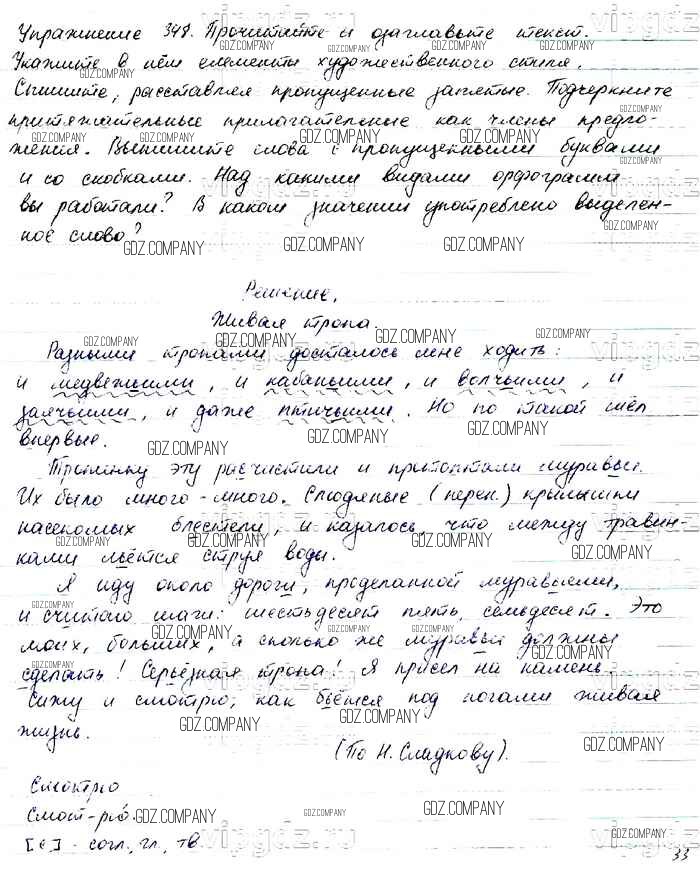 Упражнение 348. Прочитайте и озаглавьте текст.
Укажите в нём элементы художественного стиля.
Спишите, расставляя пропущенные запятые. Подчеркните
притяжательные прилагательные как члены предло-
жения. Выпишите слова с пропущенными буквами
и со скобками. Над какими видами орфограмм
вы работали? В каком значении употреблено выделен-
ное слово?
Решение.
Живая тропа.
Разными тропами досталось мне ходить:
и медвежьими, и кабаньими, и волчьими, и
заячьими, и даже птичьими. Но по такой шёл
впервые.
Тропинку эту расчистили и притоптали муравьи.
Их было много-много. Слюдяные (перен.) крылышки
насекомых блестели, и казалось, что между травин-
ками льётся струя воды.
Я иду около дороги, проделанной муравьями,
и считаю шаги: шестьдесят пять, семьдесят. Это
моих, больших, а сколько же муравьи должны
сделать! Серьёзная тропа! Я присел на камень.
Сижу и смотрю, как бьётся под ногами живая
жизнь.
(По Н. Сладкову).
Смотрю
Смот-рю.
[с] - согл., гл., тв
33
GDZ.COMPANY
vipgdz.ru